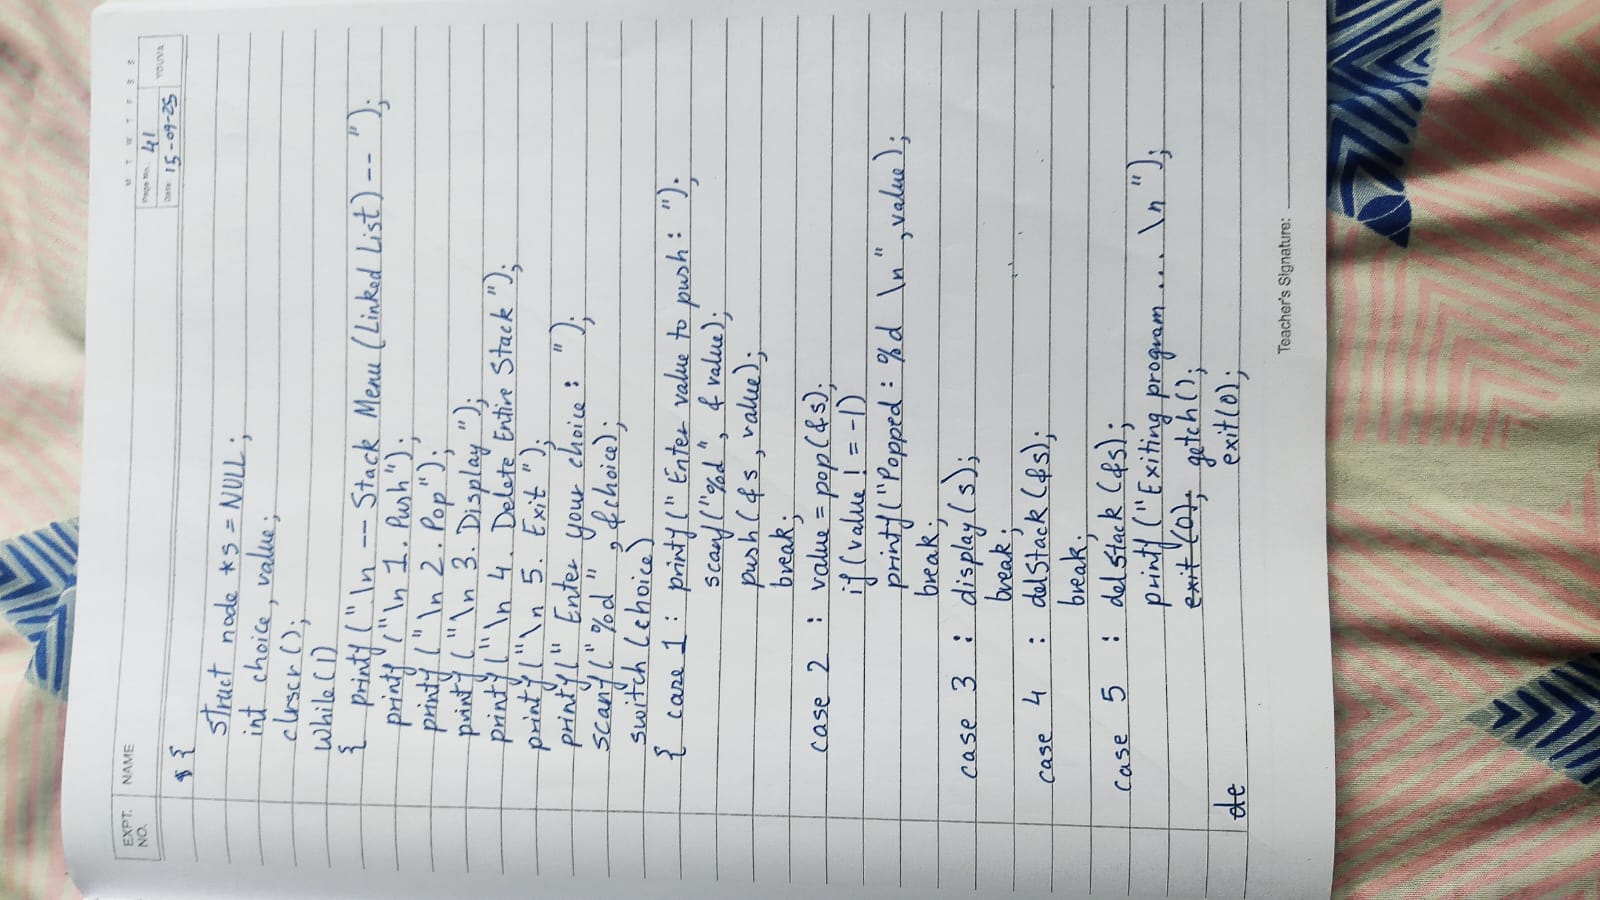 EXPT. NO. NAME
M T W T F S S
Page No.: 41
Date: 15-09-25
YOUVA
{
struct node *s = NULL;
int choice, value;
clrscr();
while(1)
{ printf("\n -- Stack Menu (Linked List) -- ");
printf ("\n 1. Push");
printf ("\n 2. Pop");
printf ("\n 3. Display ");
printf("\n 4. Delete Entire Stack ");
printf("\n 5. Exit ");
printf(" Enter your choice : ");
scanf("%d ", &choice);
switch (choice)
{ case 1 : printf(" Enter value to push : ");
scanf("%d", & value);
push(&s, value);
break;
case 2 : value = pop(&s);
if(value != -1)
printf("Popped : %d \n", value);
break;
case 3 : display(s);
break;
case 4 : delStack(&s);
break;
case 5 : delStack (&s);
printf ("Exiting program ... \n ");
exit (0); getch();
de exit(0);
Teacher's Signature: